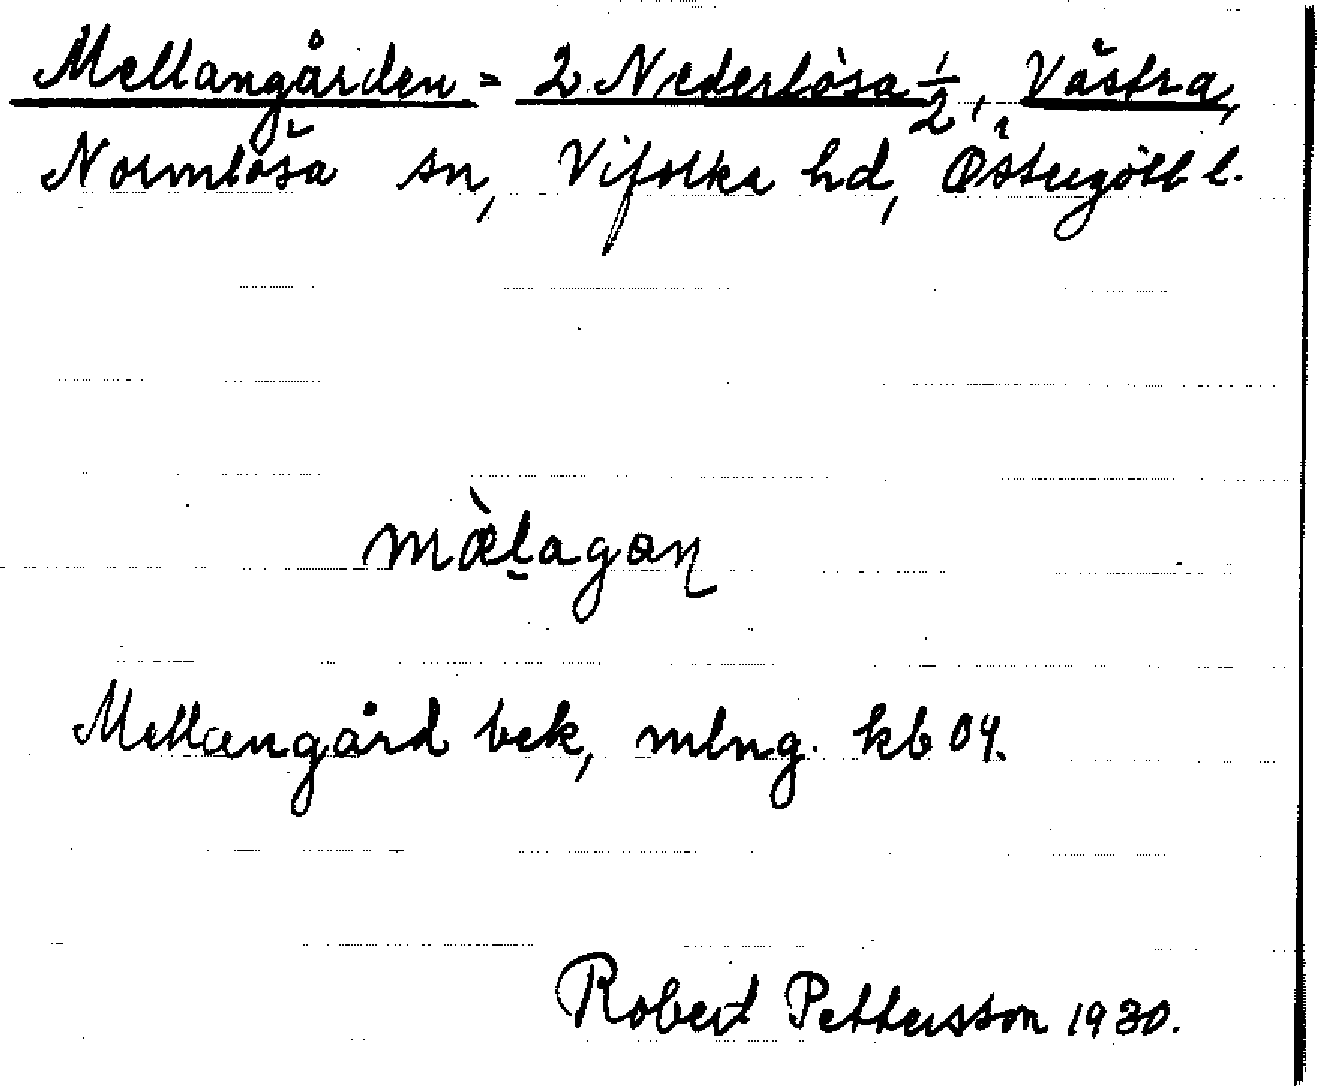 Mellangården = 2 Nederlösa 1/2, Västra,
Normlösa sn, Vifolka hd, Östergötl l.
mæ̀l̠agaɳ
Mellangård bek, mlng. kb 04.
Robert Pettersson 1930.